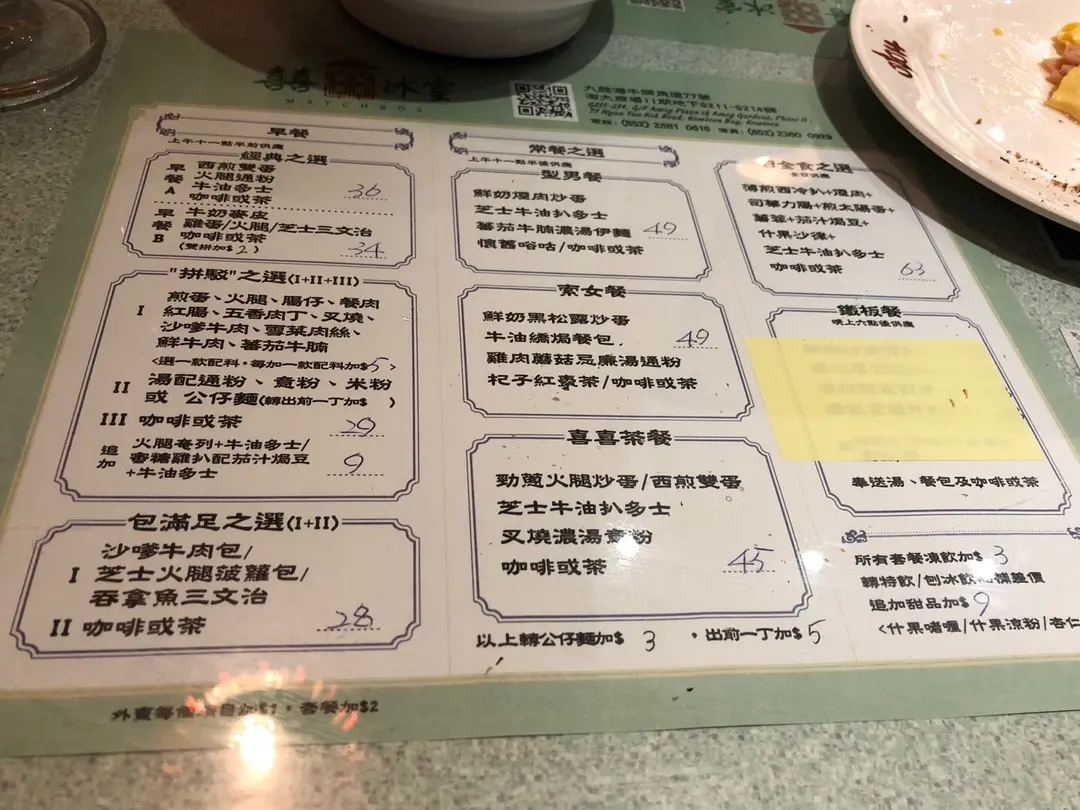 囍喜冰室
MATCHBOX
九龍灣牛頭角道77號
淘大商場II期地下G211-G214號
G211-214, G/F Amoy Plaza of Amoy Gardens, Phase II,
77 Ngau Tau Kok Road, Kowloon Bay, Kowloon
電話: (852) 2881 0616 傳真: (852) 2360 0929
早餐
上午十一點半前供應
經典之選
早餐A
西煎雙蛋
火腿通粉
牛油多士
咖啡或茶 36
早餐B
牛奶麥皮
雞蛋/火腿/芝士三文治
咖啡或茶
(雙拼加$2) 34
"拼駁"之選(I+II+III)
I 煎蛋、火腿、腸仔、餐肉
紅腸、五香肉丁、叉燒、
沙嗲牛肉、雪菜肉絲、
鮮牛肉、蕃茄牛腩
<選一款配料,每加一款配料加$5>
II 湯配通粉、意粉、米粉
或 公仔麵(轉出前一丁加$ )
III 咖啡或茶 29
追加 火腿奄列+牛油多士/
蜜糖雞扒配茄汁焗豆
+牛油多士 9
包滿足之選(I+II)
沙嗲牛肉包/
I 芝士火腿菠蘿包/
吞拿魚三文治
II 咖啡或茶 28
常餐之選
上午十一點半後供應
型男餐
鮮奶煙肉炒蛋
芝士牛油扒多士
蕃茄牛腩濃湯伊麵 49
懷舊哈咕/咖啡或茶
索女餐
鮮奶黑松露炒蛋
牛油焗餐包 49
雞肉蘑菇忌廉湯通粉
杞子紅棗茶/咖啡或茶
喜喜茶餐
勁蔥火腿炒蛋/西煎雙蛋
芝士牛油扒多士
叉燒濃湯意粉
咖啡或茶 45
以上轉公仔麵加$ 3 ,出前一丁加$ 5
日全食之選
全日供應
薄煎西冷扒+煙肉+
司華力腸+煎太陽蛋+
薯蓉+茄汁焗豆+
什果沙律+
芝士牛油扒多士
咖啡或茶 63
鐵板餐
晚上六點後供應
奉送湯、餐包及咖啡或茶
所有套餐凍飲加$ 3
轉特飲/刨冰飲品補差價
追加甜品加$ 9
<什果啫喱/什果涼粉/杏仁
外賣每個項目加$1,套餐加$2